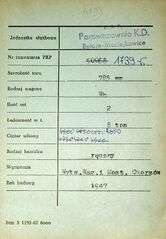 Jednostka służbowa
Parowozownia K.D.
Bytom-Maciejkowice
Nr inwentarza PKP
1739
Szerokość toru
785 mm
Rodzaj wagonu
Wh
Ilość osi
2
Ładowność w t.
8 ton
Ciężar własny
Rodzaj hamulca
ręczny
Wyposażenie
Wytw.Wag.i Most. Chorzów
Rok budowy
1947